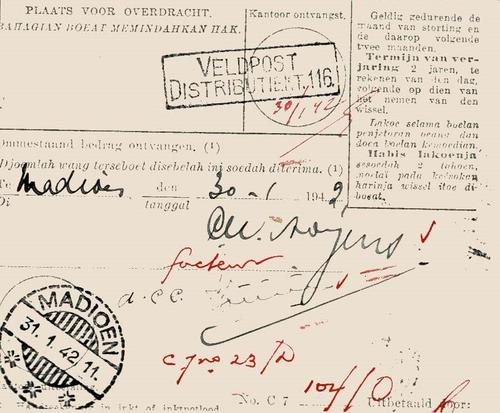 PLAATS VOOR OVERDRACHT.
BAHAGIAN BOEAT MEMINDAHKAN HAK.
Kantoor ontvangst.
VELDPOST
DISTRIBUTIEKT.116.
30/1/42
Geldig gedurende de
maand van storting en
de daarop volgende
twee maanden.
Termijn van ver-
jaring 2 jaren, te
rekenen van den dag,
volgende op dien van
het nemen van den
wissel.
Lakoe selama boelan
penjetoran oeang dan
doea boelan kemoedian.
Habis lakoenja
sesoedah 2 tahoen,
moelai pada keësokan
harinja wissel itoe di-
boeat.
Ommestaand bedrag ontvangen. (1)
Djoemlah wang terseboet disebelah ini soedah diterima. (1)
Te Madioen den 30-1 1942
Di tanggal
facteur
d.C.C.
MADIOEN
31.1.42 11
23/D
104/D
No. C 7
Uitbetaald door:
in inkt of inktpotlood